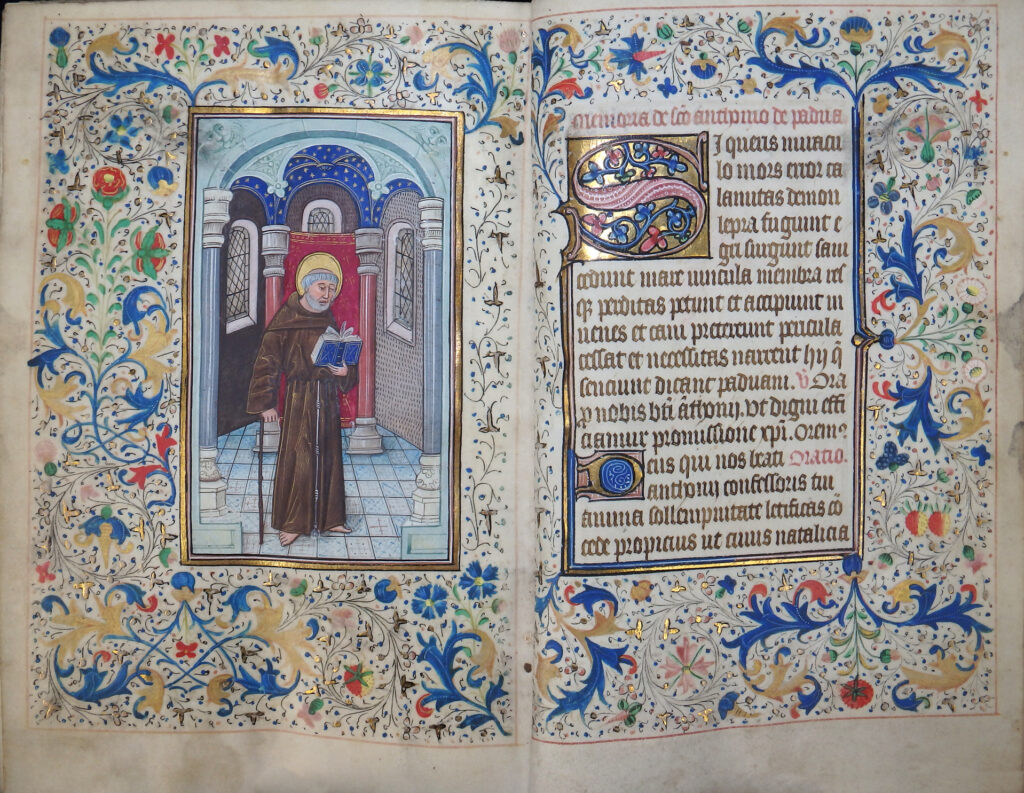 Memoria de sco anthonio de padua
Si queris miracu
lo mors error ca
lamitas demon
lepra fugiunt e
gri surgunt sani
cedunt mare vincula membra res
qꝫ perditas petunt et accipiunt iu
uenes et cani pretereunt pericula
cessat et necessitas narrent hij q̄
senciunt dicant paduani. V̄ Ora
ꝓ nobis bti āthonij. Vt digni effi
ciamur promissione xpi. Oremꝰ
Deus qui nos beati Oratio.
anthonij confessoris tui
annua sollempnitate letificas cō
cede propicius ut cuius natalicia